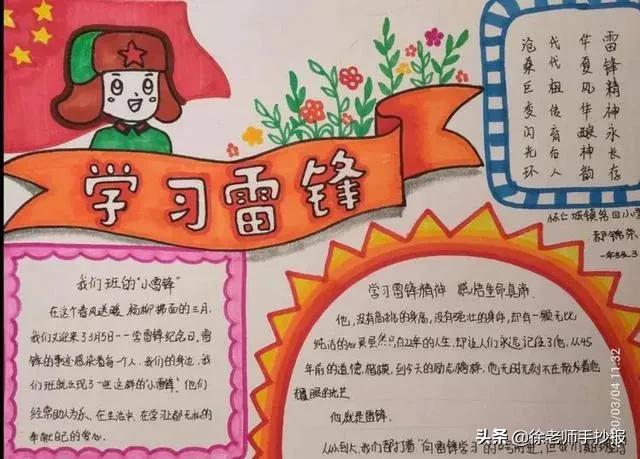 学习雷锋
雷锋精神永长存
华夏风华酿神韵
代代祖传育后人
沧桑巨变闪光环
怀仁城镇第四小
一年级3
我们班的“小雷锋”
在这个春风送暖、杨柳拂面的三月,
我们又迎来了3月5日——学雷锋纪念日,雷
锋的事迹感染着每一个人,我们的身边,我
们班就出现了一些这样的“小雷锋”,他们
经常助人为乐、在生活中、在学习上都无私的
奉献自己的爱心.
学习雷锋精神 感悟生命真谛
他,没有高挑的身高,没有强壮的身体,却有一颗无比
纯洁的心灵虽然只有22年的人生,却让人们永远记住了他,从45
年前的道德楷模,到今天的励志榜样,他无时无刻不在散发着他
耀眼的光芒
他就是雷锋.
从小到大,我们都打着“向雷锋学习”的口号前进,但我们
20/03/04 11:32
头条 @徐老师手抄报